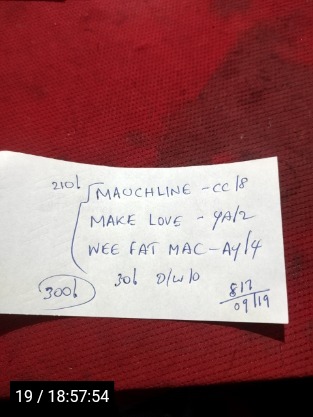 210/
MAUCHLINE - CC/8
MAKE LOVE - YA/2
WEE FAT MAC - AY/4
300/ 30/ D/W/O
817
09/19
19 / 18:57:54